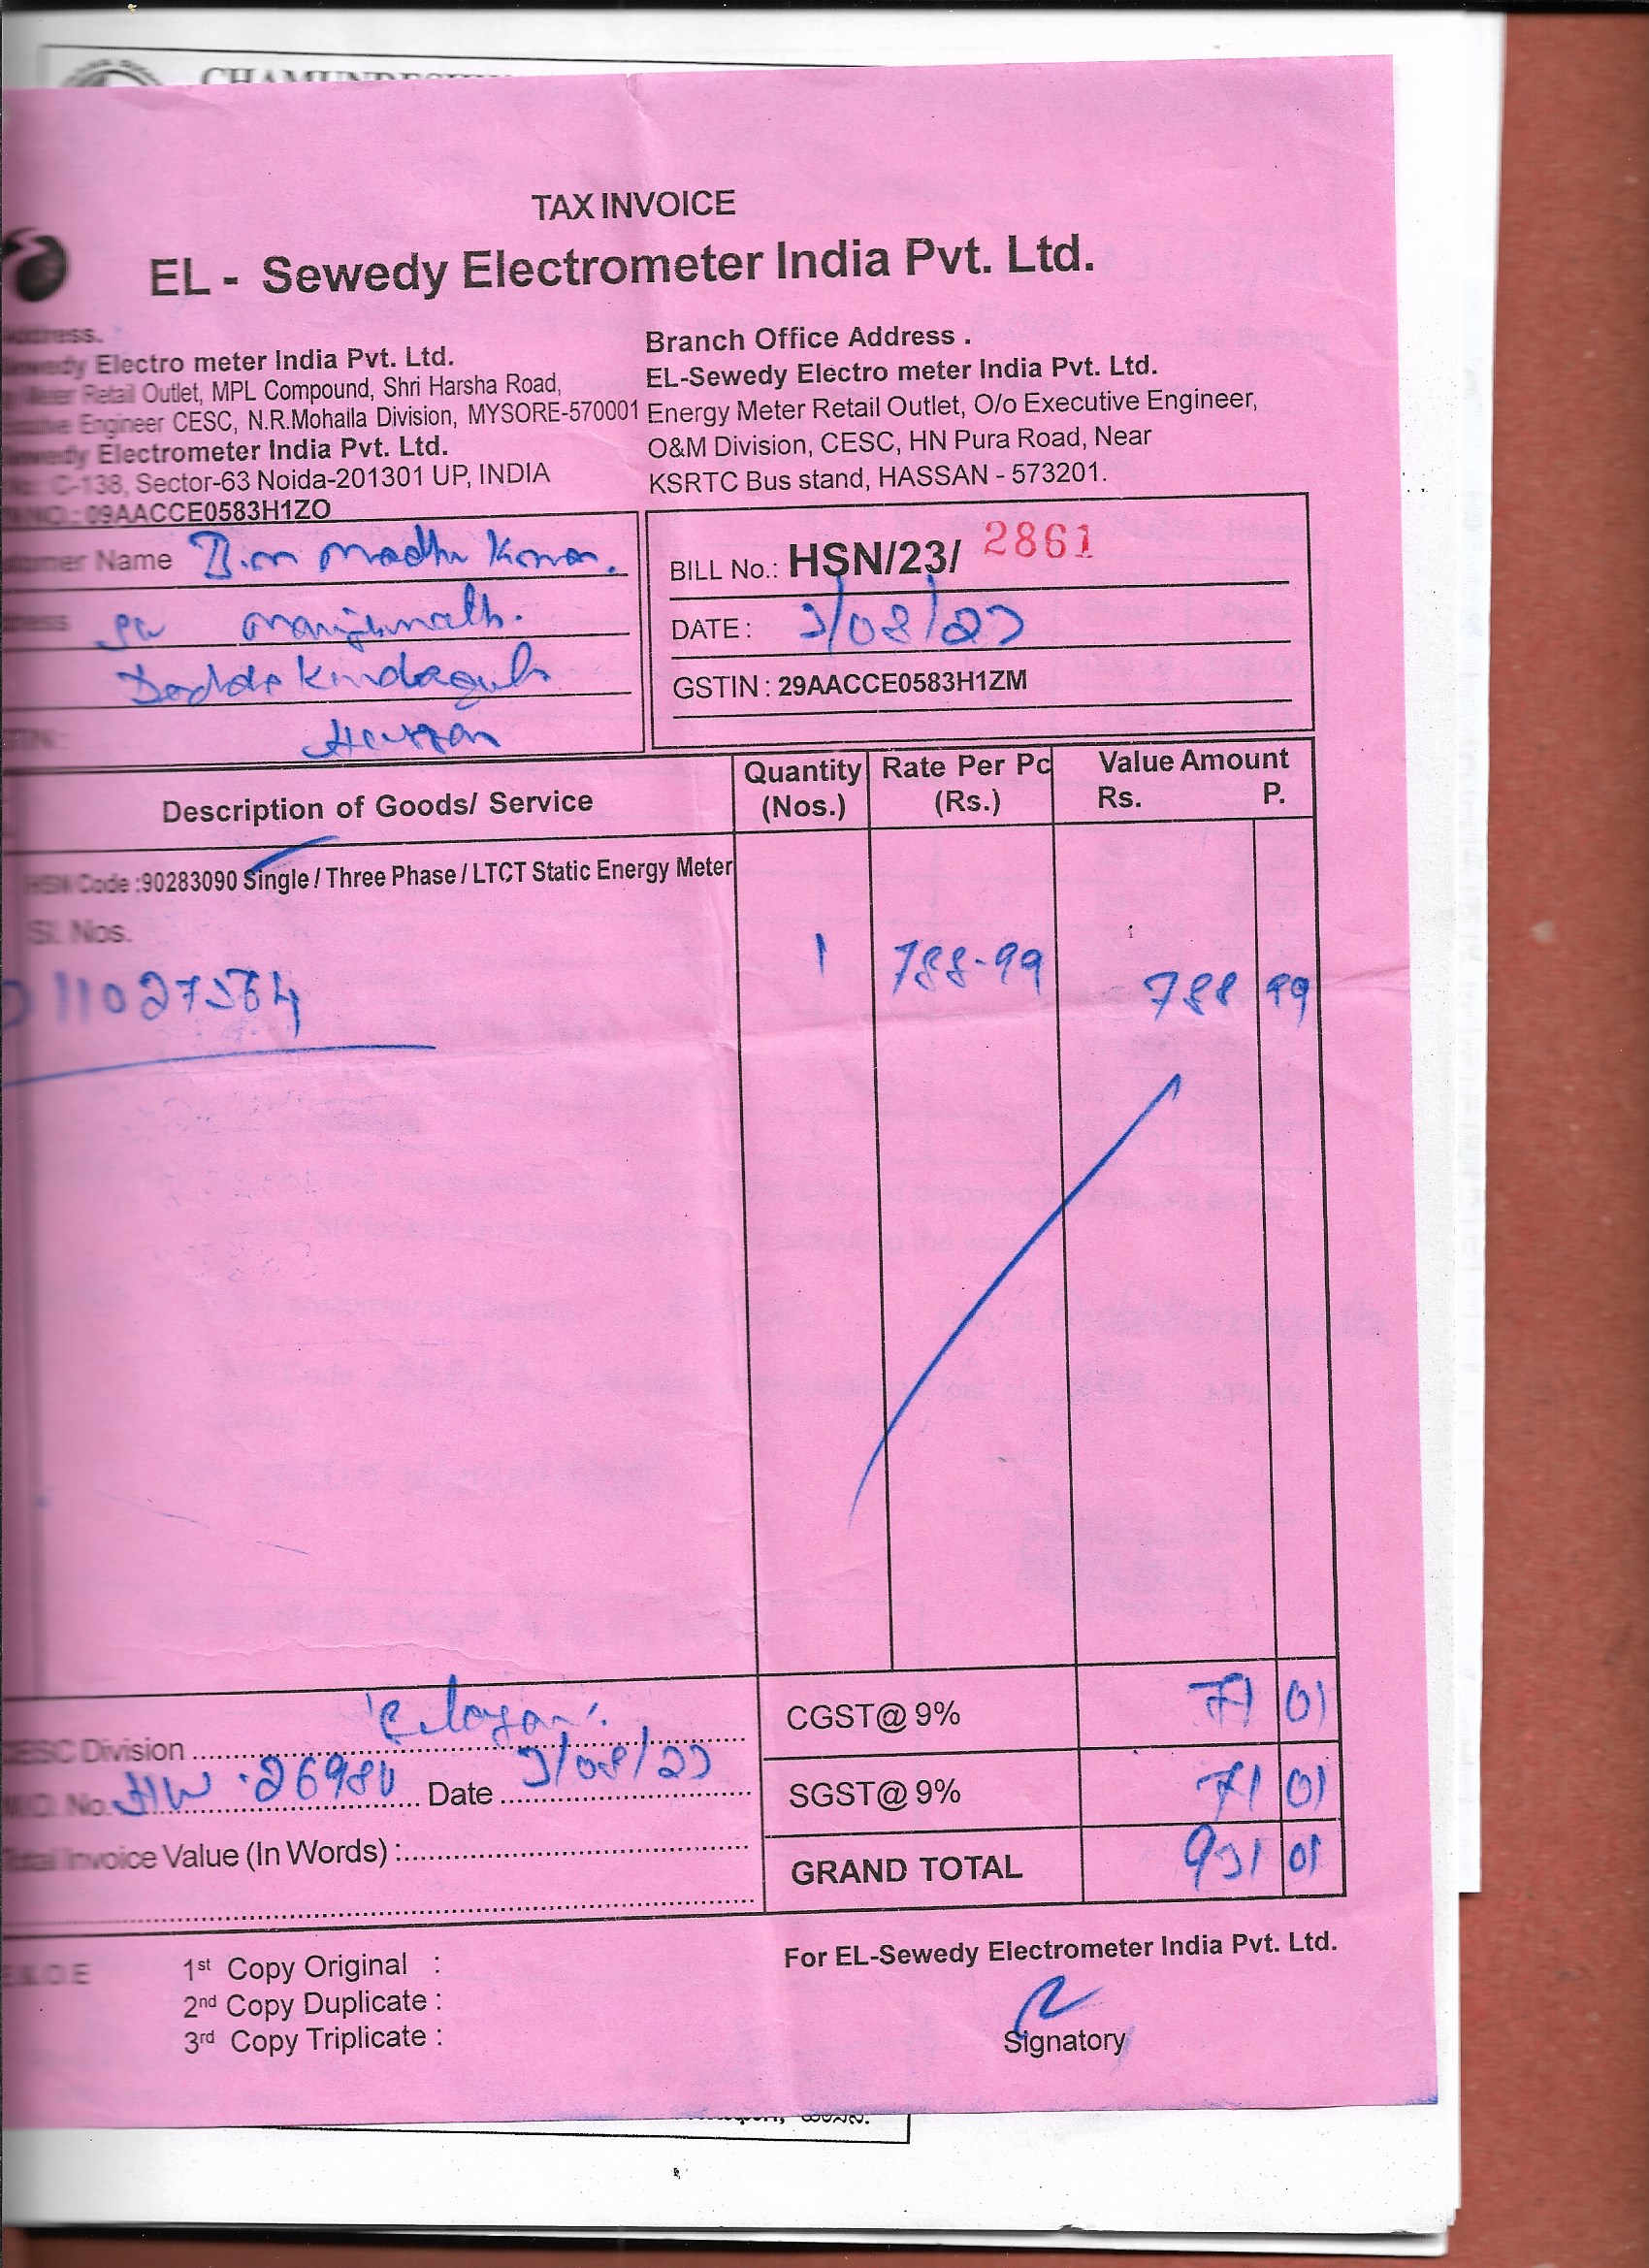 TAX INVOICE
EL - Sewedy Electrometer India Pvt. Ltd.
Address.
Sewedy Electro meter India Pvt. Ltd.
Meter Retail Outlet, MPL Compound, Shri Harsha Road,
Engineer CESC, N.R.Mohalla Division, MYSORE-570001
Electrometer India Pvt. Ltd.
C-138, Sector-63 Noida-201301 UP, INDIA
09AACCE0583H1ZO
Branch Office Address .
EL-Sewedy Electro meter India Pvt. Ltd.
Energy Meter Retail Outlet, O/o Executive Engineer,
O&M Division, CESC, HN Pura Road, Near
KSRTC Bus stand, HASSAN - 573201.
Name Madhu
Manjunath.
Hassan
BILL No.: HSN/23/ 2861
DATE : 3/08/23
GSTIN : 29AACCE0583H1ZM
Description of Goods/ Service
Quantity (Nos.)
Rate Per Pc (Rs.)
Value Amount
Rs. P.
HSN Code :90283090 Single / Three Phase / LTCT Static Energy Meter
Sl. Nos.
11027564
1 788-99 788 99
CESC Division
No. 26980 Date 3/08/23
Total Invoice Value (In Words) :
CGST@ 9% 71 01
SGST@ 9% 71 01
GRAND TOTAL 931 01
E.& O.E
1st Copy Original :
2nd Copy Duplicate :
3rd Copy Triplicate :
For EL-Sewedy Electrometer India Pvt. Ltd.
Signatory